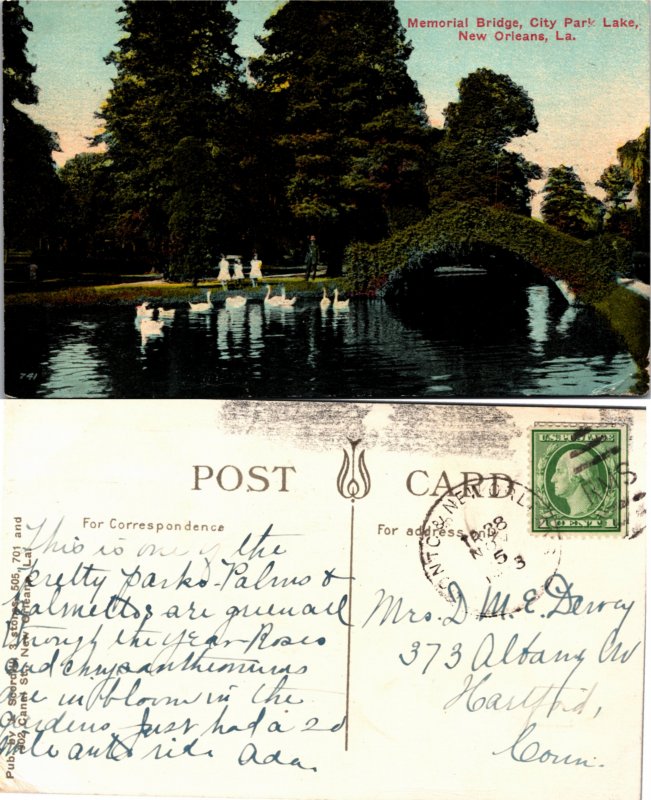 Memorial Bridge, City Park Lake,
New Orleans, La.
741
POST CARD
For Correspondence
For address only
U.S. POSTAGE
1 CENT 1
RMS
This is one of the
pretty parks. Palms &
Palmettos are green all
through the year. Roses
and chrysanthemums
are in bloom in the
gardens. Just had a 20
mile auto ride Ada.
Mrs. D. M. E. Dewey
373 Albany Av
Hartford,
Conn.
3 stores, 505, 701 and
902 Canal St., New Orleans, La.